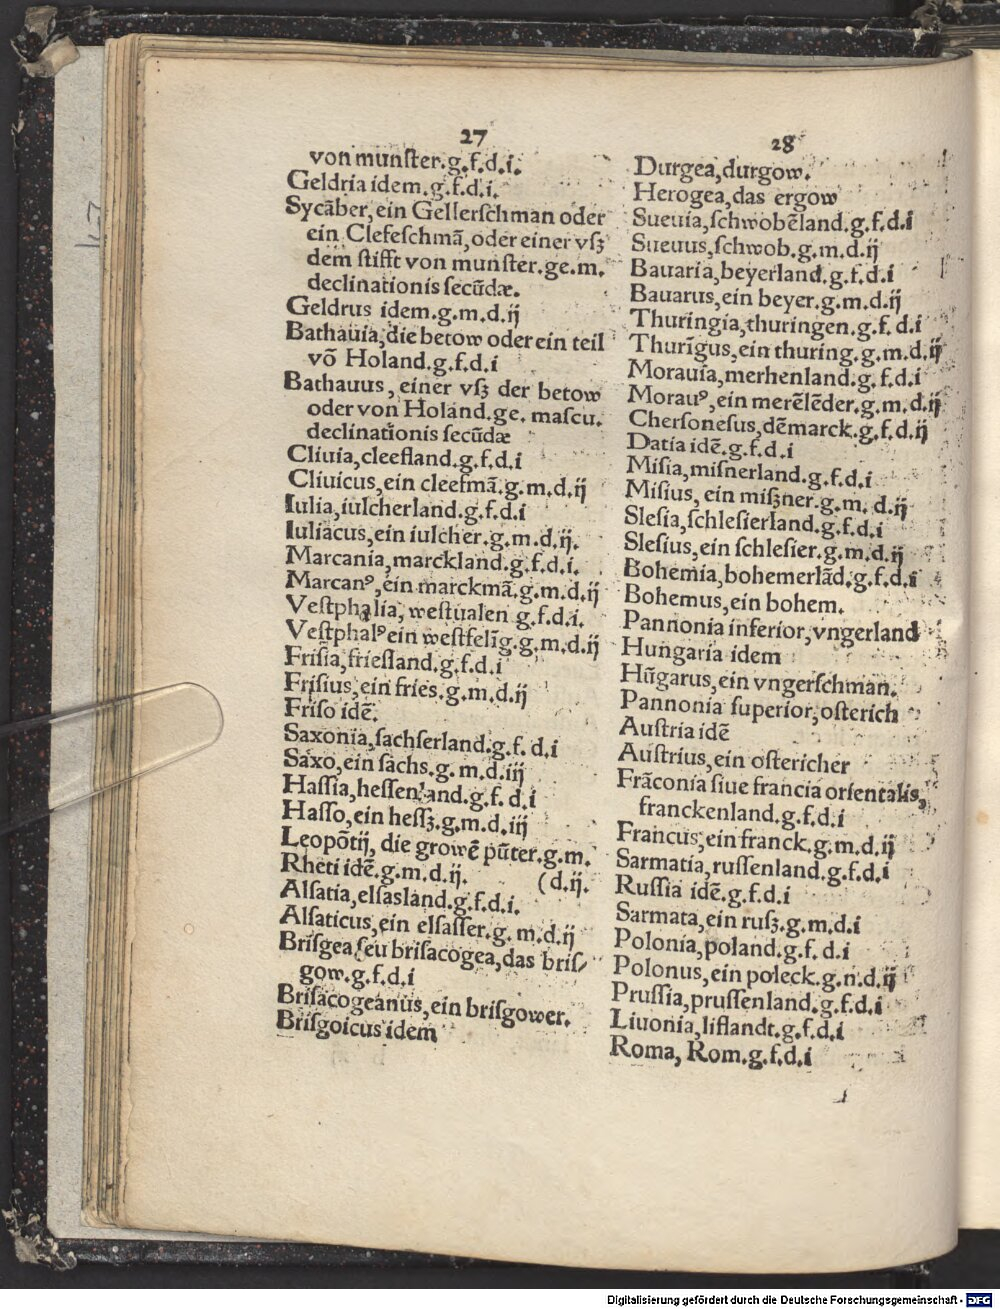 27
von munſter.g.f.d.i.
Geldria idem.g.f.d.i.
Sycāber, ein Gellerſchman oder
ein Clefeſchmā, oder einer vſʒ
dem ſtifft von munſter.ge.m.
declinationis ſecūdæ.
Geldrus idem.g.m.d.ij
Bathauia, die betow oder ein teil
vō Holand.g.f.d.i
Bathauus, einer vſʒ der betow
oder von Holand.ge. maſcu.
declinationis ſecūdæ
Cliuia, cleefland.g.f.d.i
Cliuicus, ein cleefmā.g.m.d.ij
Iulia, iulcherland.g.f.d.i
Iuliacus, ein iulcher.g.m.d.ij.
Marcania, marckland.g.f.d.i.
Marcanꝰ, ein marckmā.g.m.d.ij
Veſtphalia, weſtualen g.f.d.i.
Veſtphalꝰ ein weſtfelīg.g.m.d.ij
Friſia, frieſland.g.f.d.i
Friſius, ein fries.g.m.d.ij
Friſo idē.
Saxonia, ſachſerland.g.f.d.i
Saxo, ein ſachs.g.m.d.iij
Haſſia, heſſenland.g.f.d.i
Haſſo, ein heſſʒ.g.m.d.iij
Leopōtij, die growē pūter.g.m.
Rheti idē.g.m.d.ij. (d.ij.
Alſatia, elſasland.g.f.d.i.
Alſaticus, ein elſaſſer.g.m.d.ij
Briſgea ſeu briſacogea, das briſ/
gow.g.f.d.i
Briſacogeanus, ein briſgower.
Briſgoicus idem
28
Durgea, durgow.
Herogea, das ergow
Sueuia, ſchwobēland.g.f.d.i
Sueuus, ſchwob.g.m.d.ij
Bauaria, beyerland.g.f.d.i
Bauarus, ein beyer.g.m.d.ij
Thuringia, thuringen.g.f.d.i
Thurīgus, ein thuring.g.m.d.ij
Morauia, merhenland.g.f.d.i
Morauꝰ, ein merēlēder.g.m.d.ij
Cherſoneſus, dēmarck.g.f.d.ij
Datia idē.g.f.d.i
Miſia, miſnerland.g.f.d.i
Miſius, ein miſʒner.g.m.d.ij
Sleſia, ſchleſierland.g.f.d.i
Sleſius, ein ſchleſier.g.m.d.ij
Bohemia, bohemerlād.g.f.d.i
Bohemus, ein bohem.
Pannonia inferior, vngerland
Hungaria idem
Hūgarus, ein vngerſchman.
Pannonia ſuperior, oſterich
Auſtria idē
Auſtrius, ein oſtericher
Frāconia ſiue francia orientalis,
franckenland.g.f.d.i
Francus, ein franck.g.m.d.ij
Sarmatia, ruſſenland.g.f.d.i
Ruſſia idē.g.f.d.i
Sarmata, ein ruſʒ.g.m.d.i
Polonia, poland.g.f.d.i
Polonus, ein poleck.g.n.d.ij
Pruſſia, pruſſenland.g.f.d.i
Liuonia, liflandt.g.f.d.i
Roma, Rom.g.f.d.i
Digitalisierung gefördert durch die Deutsche Forschungsgemeinschaft - DFG